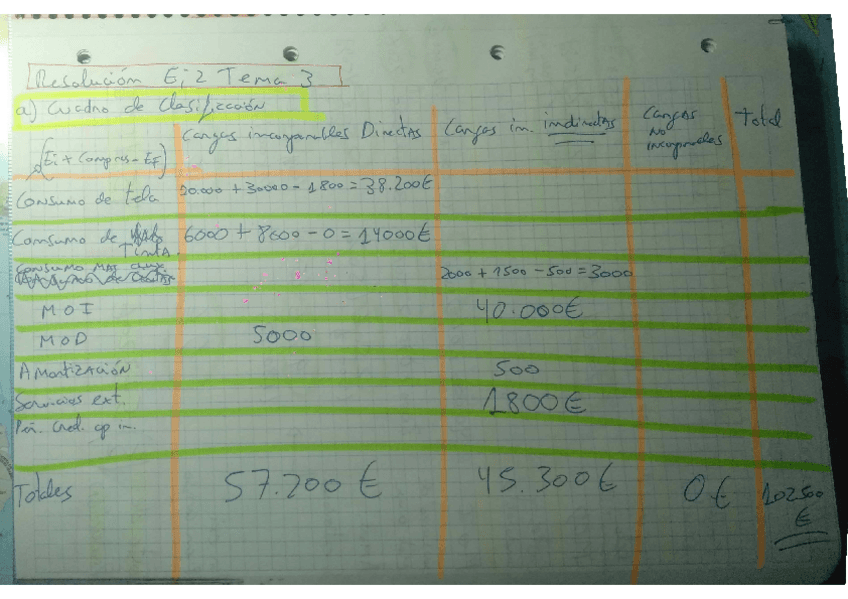 Resolución Ej 2 Tema 3
a) Cuadro de Clasificción
Cargas incorporables Directas Cargas in. indirectas Cargas no incorporables Total
(Ei + Compras - EF)
Consumo de tela 10.000 + 30000 - 1800 = 38.200€
Consumo de Tinta 6000 + 8600 - 0 = 14000€
Consumo Mat aux 2000 + 1500 - 500 = 3000
MOI 40.000€
MOD 5000
Amortización 500
Servicios ext. 1800€
Totales 57.200 € 45.300€ 0€ 102500 €